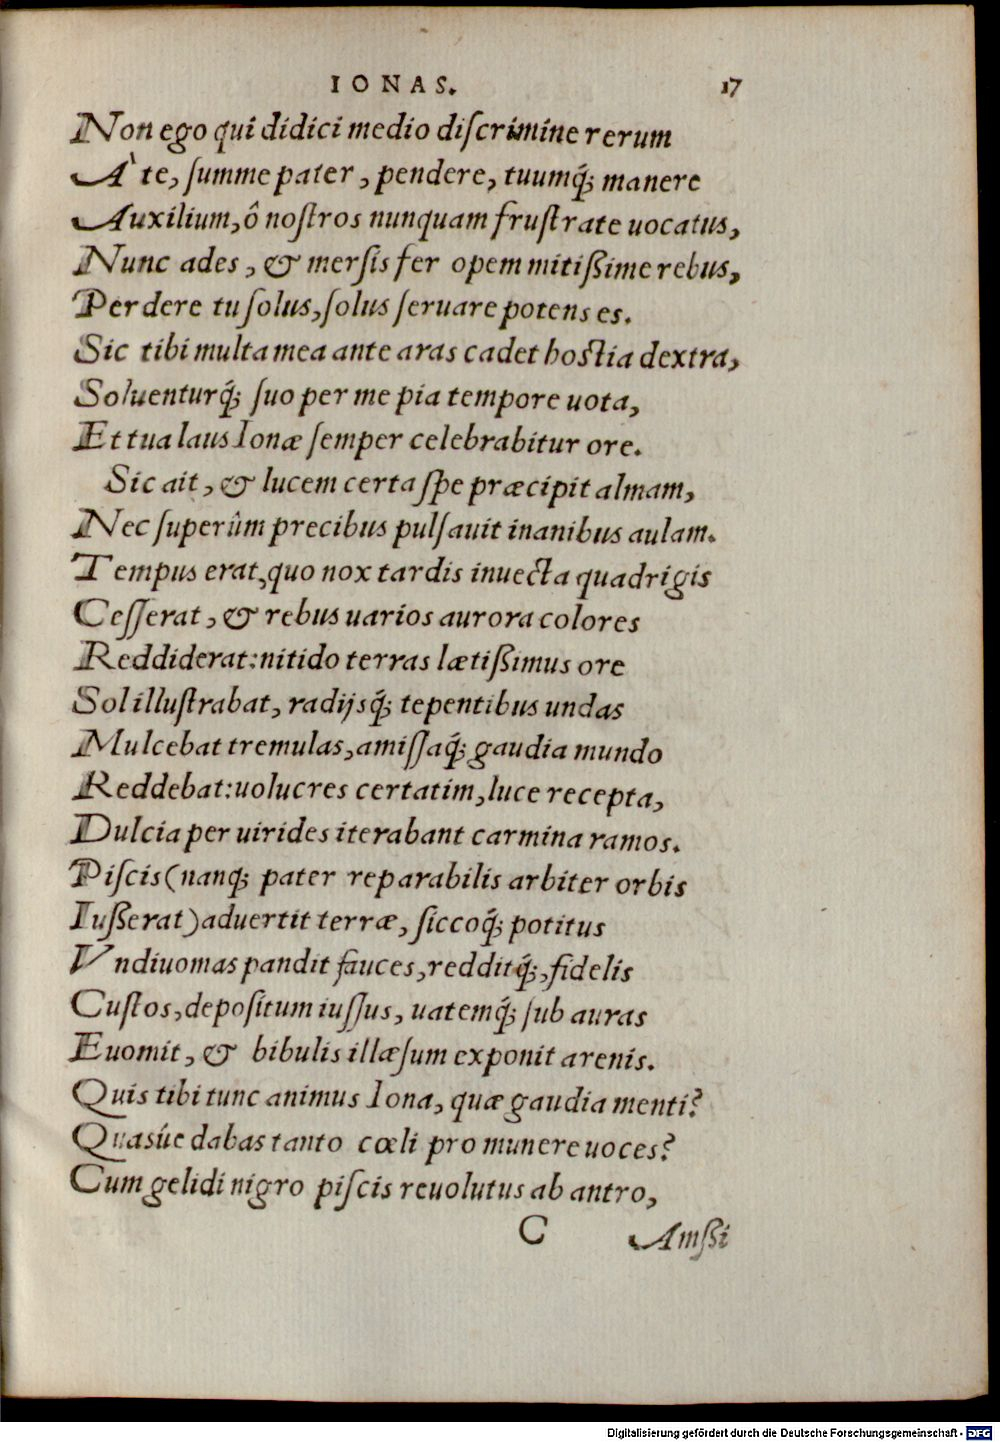 IONAS. 17
Non ego qui didici medio discrimine rerum
À te, summe pater, pendere, tuumq́; manere
Auxilium, ô nostros nunquam frustrate uocatus,
Nunc ades, & mersis fer opem mitißime rebus,
Perdere tu solus, solus seruare potens es.
Sic tibi multa mea ante aras cadet hostia dextra,
Soluenturq́; suo per me pia tempore uota,
Et tua laus Ionæ semper celebrabitur ore.
Sic ait, & lucem certa spe præcipit almam,
Nec superûm precibus pulsauit inanibus aulam.
Tempus erat, quo nox tardis inuecta quadrigis
Cesserat, & rebus uarios aurora colores
Reddiderat: nitido terras lætißimus ore
Sol illustrabat, radijsq́; tepentibus undas
Mulcebat tremulas, amissaq́; gaudia mundo
Reddebat: uolucres certatim, luce recepta,
Dulcia per uirides iterabant carmina ramos.
Piscis (nanq; pater reparabilis arbiter orbis
Iußerat) aduertit terræ, siccoq́; potitus
Vndiuomas pandit fauces, redditq́;, fidelis
Custos, depositum iussus, uatemq́; sub auras
Euomit, & bibulis illæsum exponit arenis.
Quis tibi tunc animus Iona, quæ gaudia menti?
Quasûe dabas tanto cœli pro munere uoces?
Cum gelidi nigro piscis reuolutus ab antro,
C Amßi
Digitalisierung gefördert durch die Deutsche Forschungsgemeinschaft - DFG